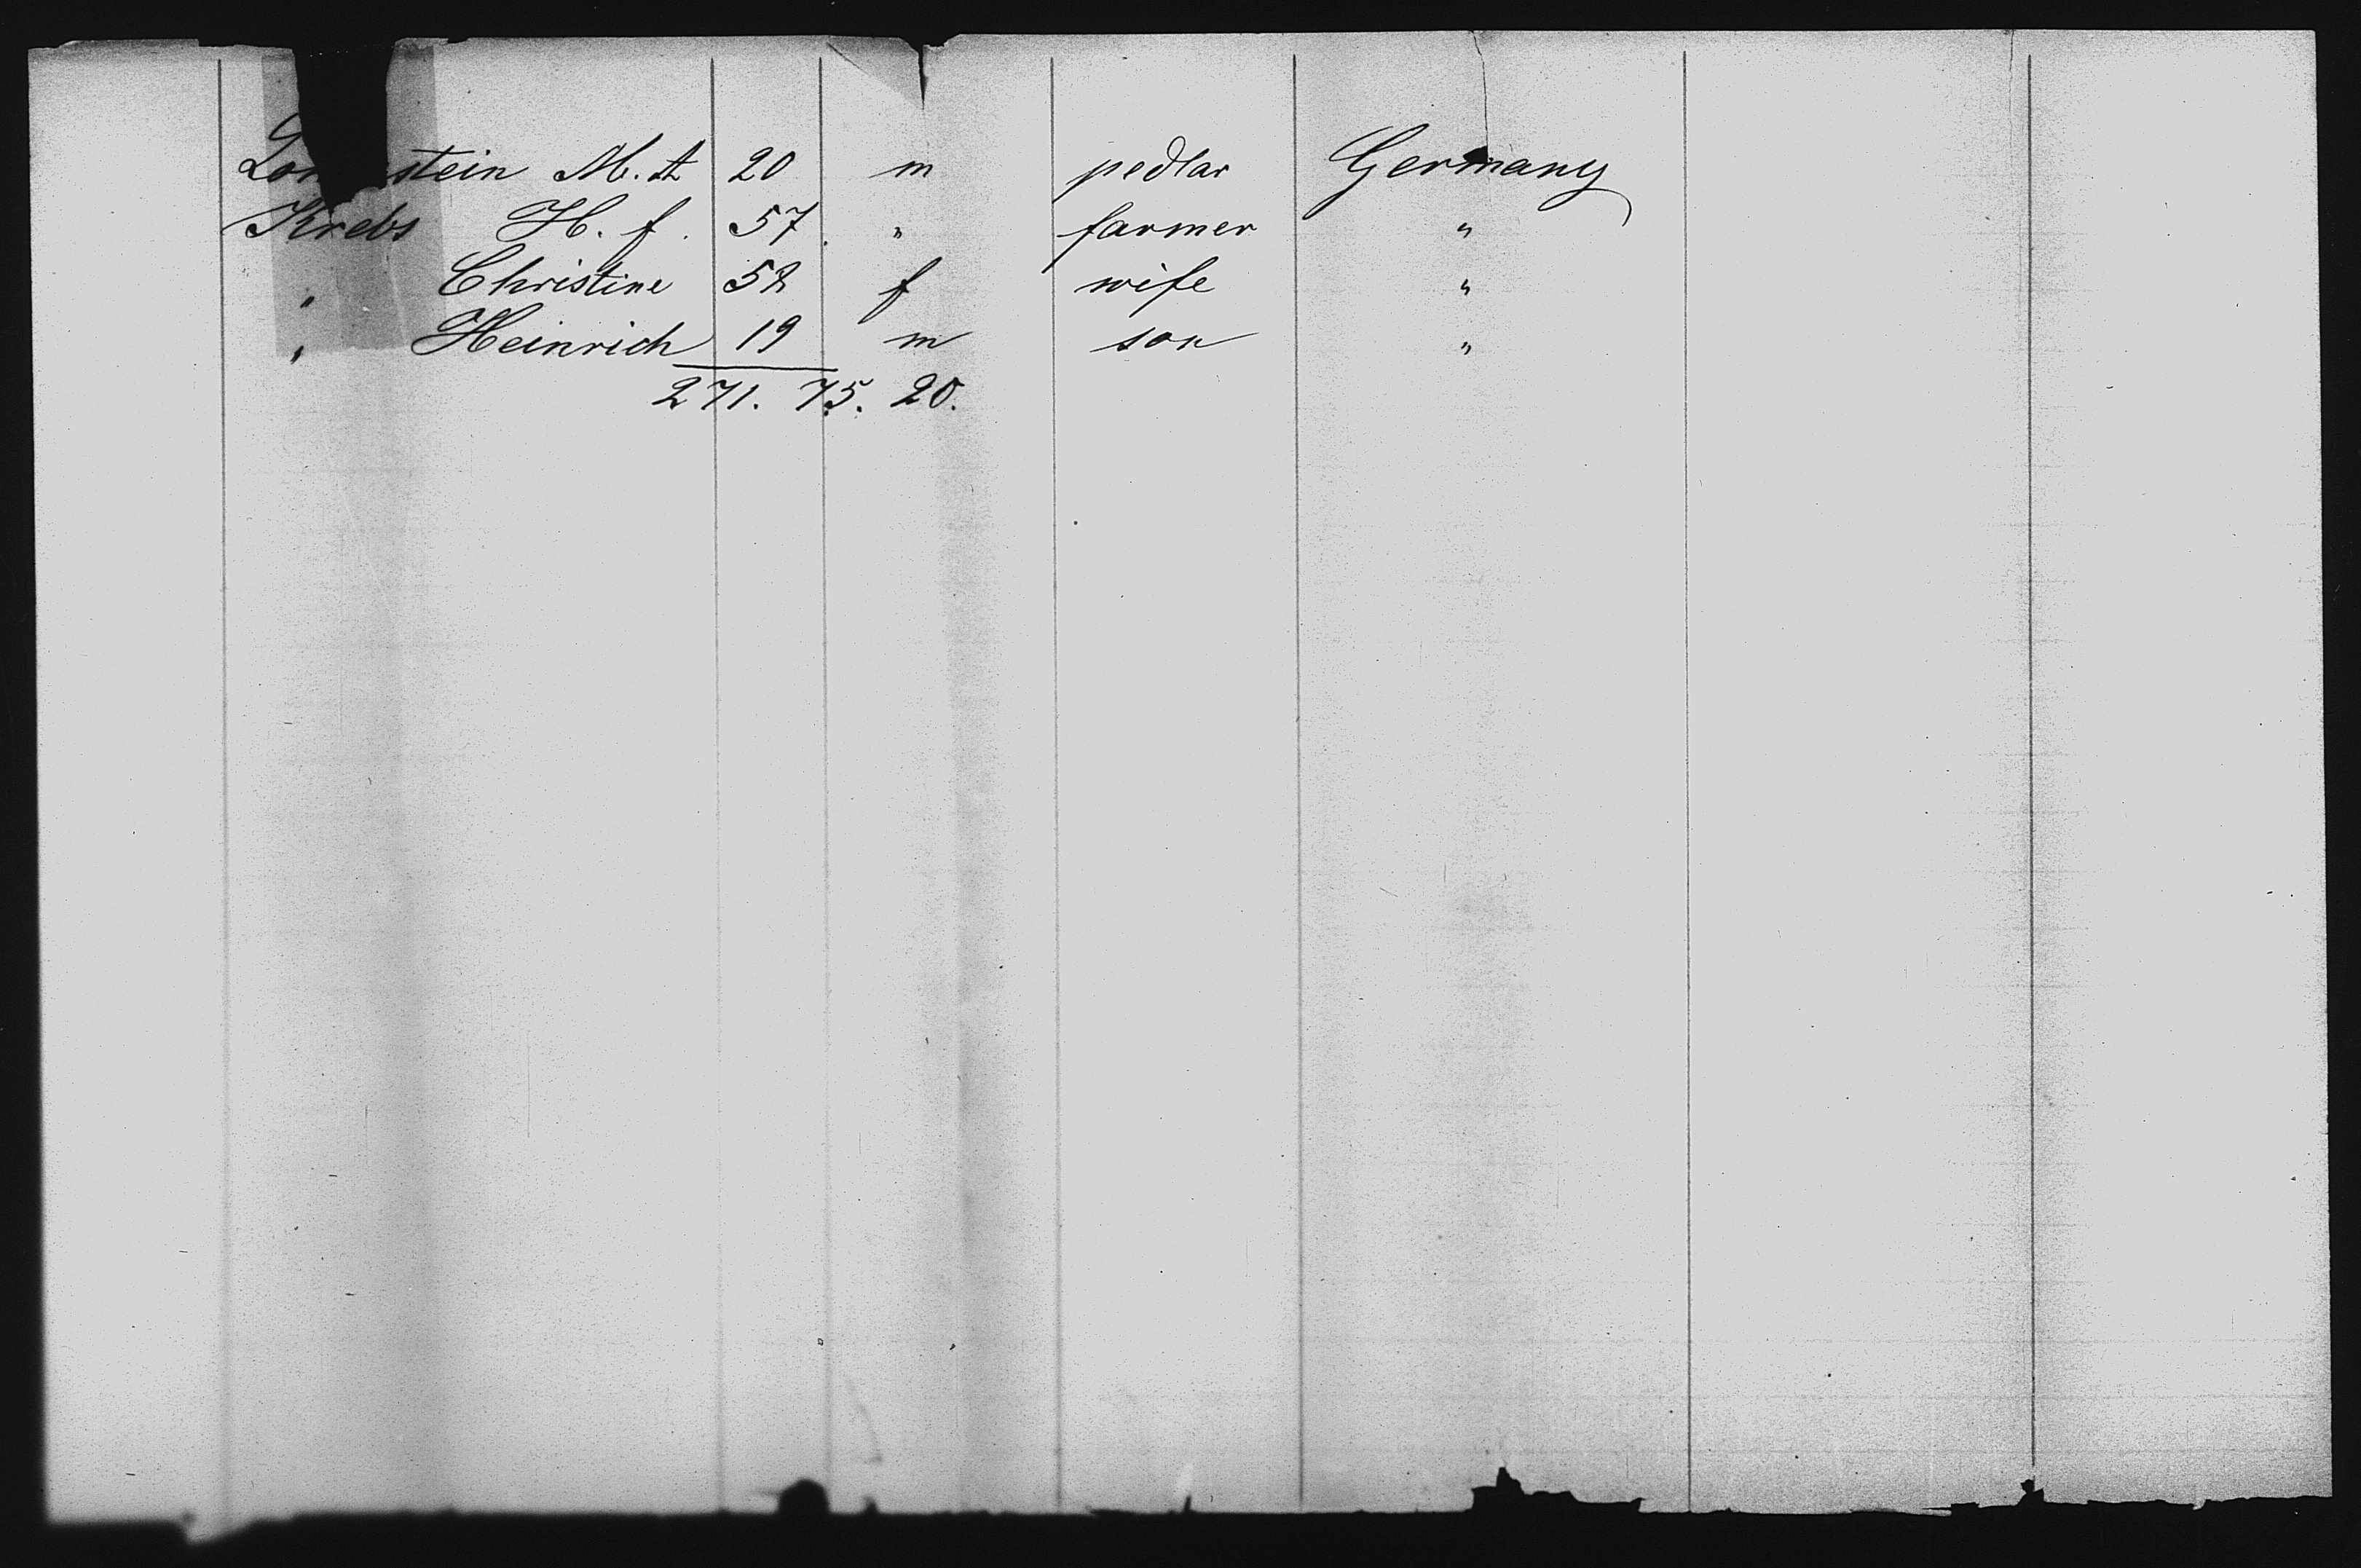 stein M. A 20 m pedlar Germany
Krebs H. f. 57. " farmer "
" Christine 58 f wife "
" Heinrich 19 m son "
271. 75. 20.